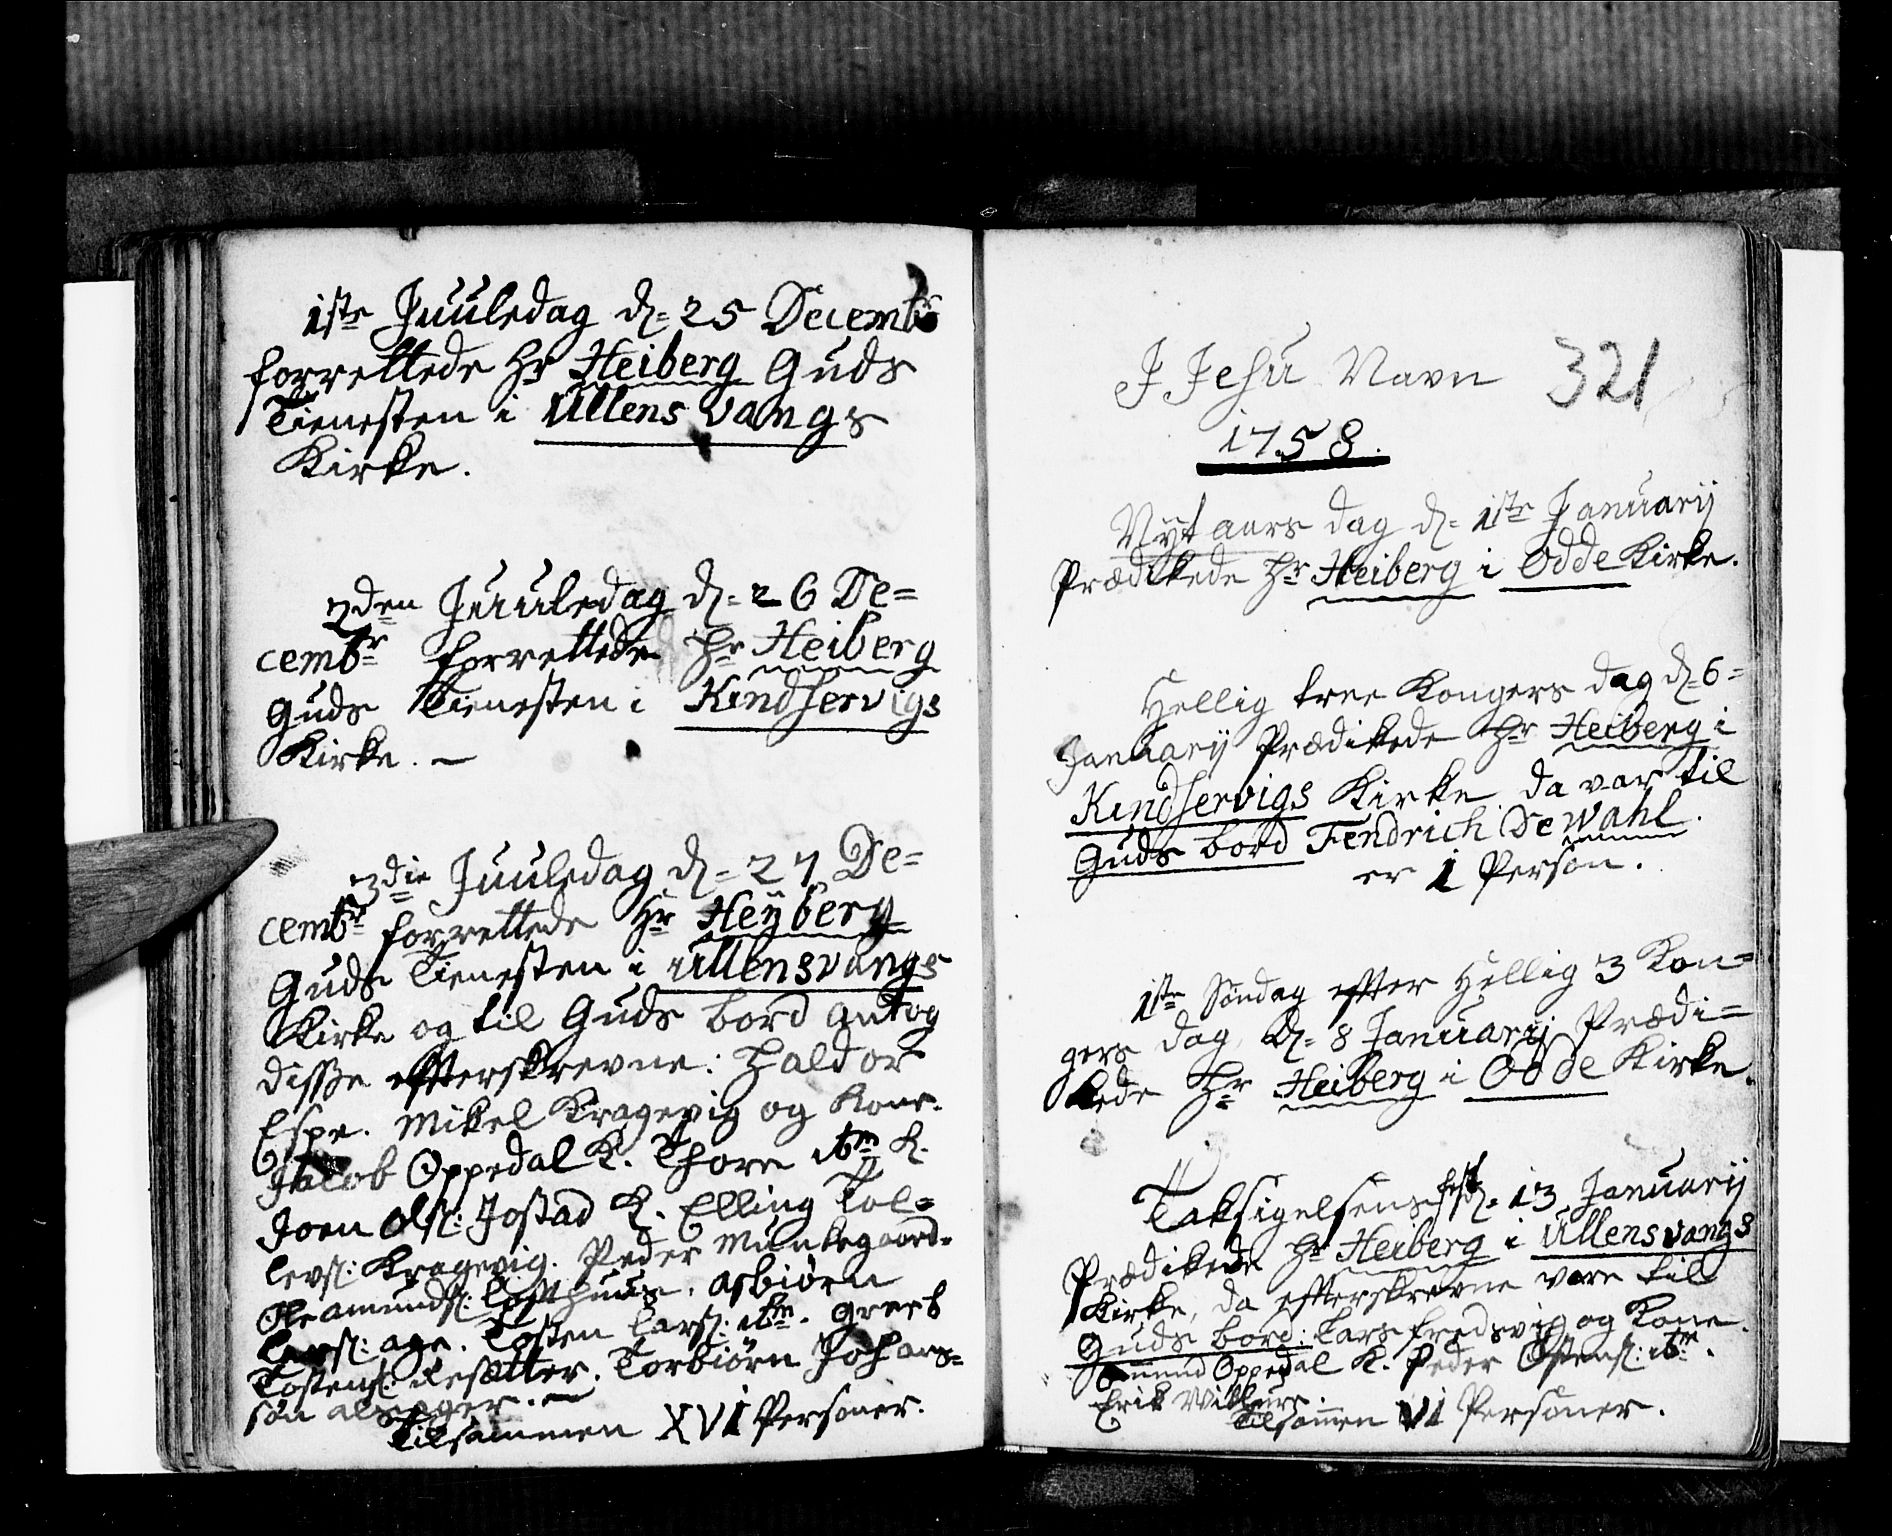 1ste Juuledag d. 25 Decembr
forrettede Hr Heiberg Guds
Tienesten i Ullensvangs
Kirke.
2den Juuledag d. 26 De=
cembr forrettede Hr Heiberg
Guds Tienesten i Kindservigs
Kirke. —
3die Juuledag d. 27 De=
cembr forrettede Hr Heÿberg
Guds Tienesten i Ullensvangs
Kirke og til Guds bord antog
disse efterskrevne: Haldor
Espe. Mikel Kragevig og Kone.
Jacob Oppedal K. Thore ibm K.
Joen Ols: Jostad K. Elling Tol=
levs: Kragevig. Peder Munkegaard.
Ole Amunds: Lofthuus. Asbiørn
Lars: Age. Tosten Lars: ibm. Greet
Tostens: Resætter. Torbiørn Johans=
søn Alsager. —
Tilsammen XVI Personer.
J Jesu Navn 321
1758.
Nÿt aars dag d. 1ste Januarij
Prædikede Hr Heiberg i Odde Kirke.
Hellig tree Kongers dag d. 6=
Januarij Prædikede Hr Heiberg i
Kindservigs Kirke da var til
Guds bord Fendrich De Wahl.
er 1 Person.
1ste Søndag efter Hellig 3 Kon=
gers dag, d. 8 Januarij Prædi=
kede Hr Heiberg i Odde Kirke.
Taksigelsens fest d. 13 Januarij
Prædikede Hr Heiberg i Ullensvangs
Kirke, da efterskrevne vare til
Guds bord: Lars Fredsvig og Kone.
Amund Oppedal K. Peder Ostens: ibm.
Erik Wilhure.
Tilsammen VI Personer.